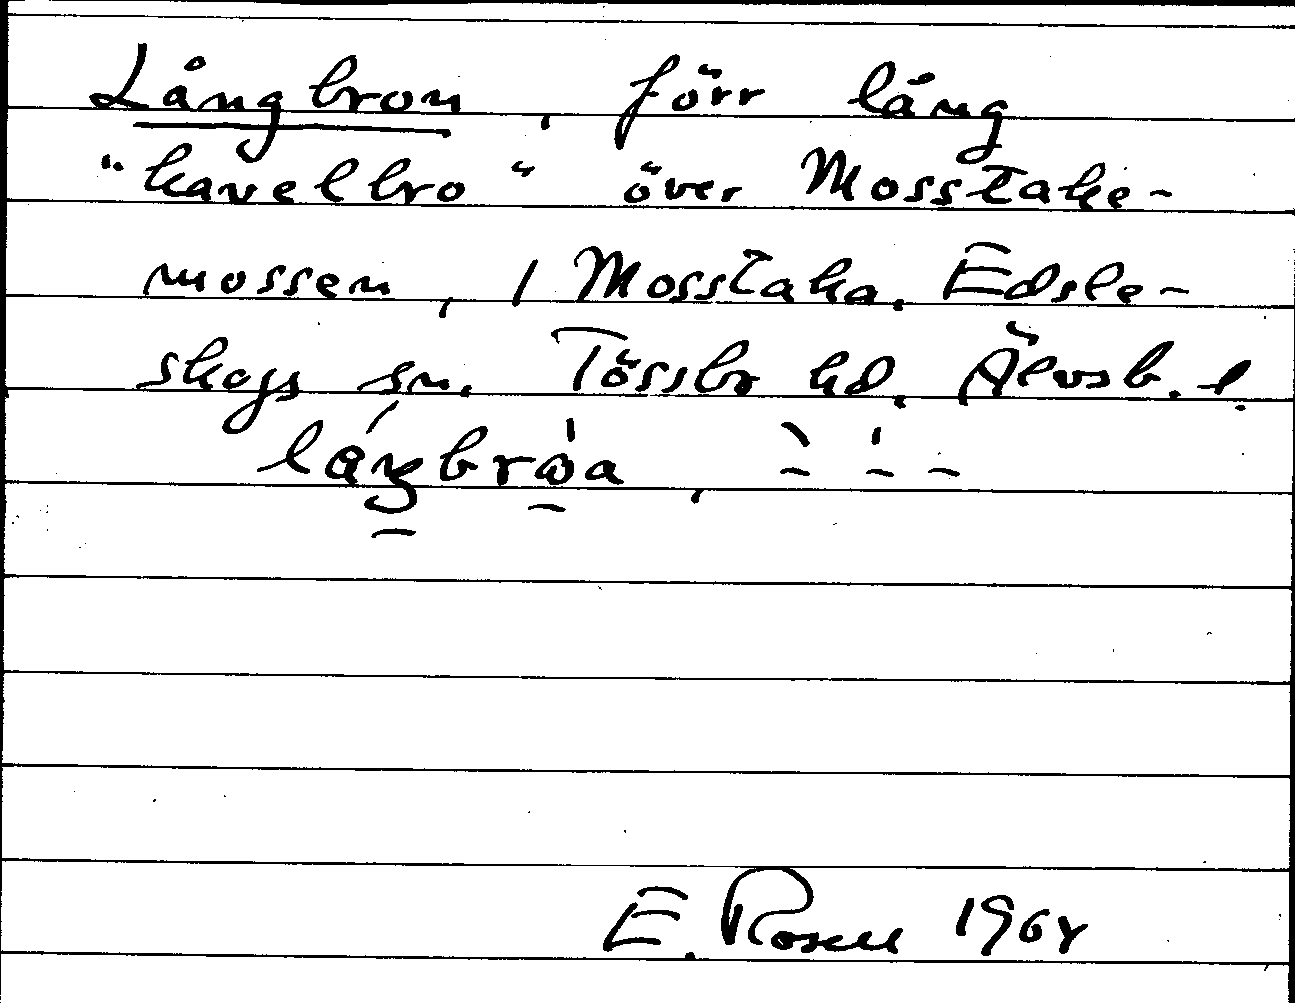 Långbron, förr lång
"kavelbro" över Mosstake-
mossen, / Mosstaka. Edsle-
skogs sn. Tössbo hd. Älvsb. l.
E. Rosell 196